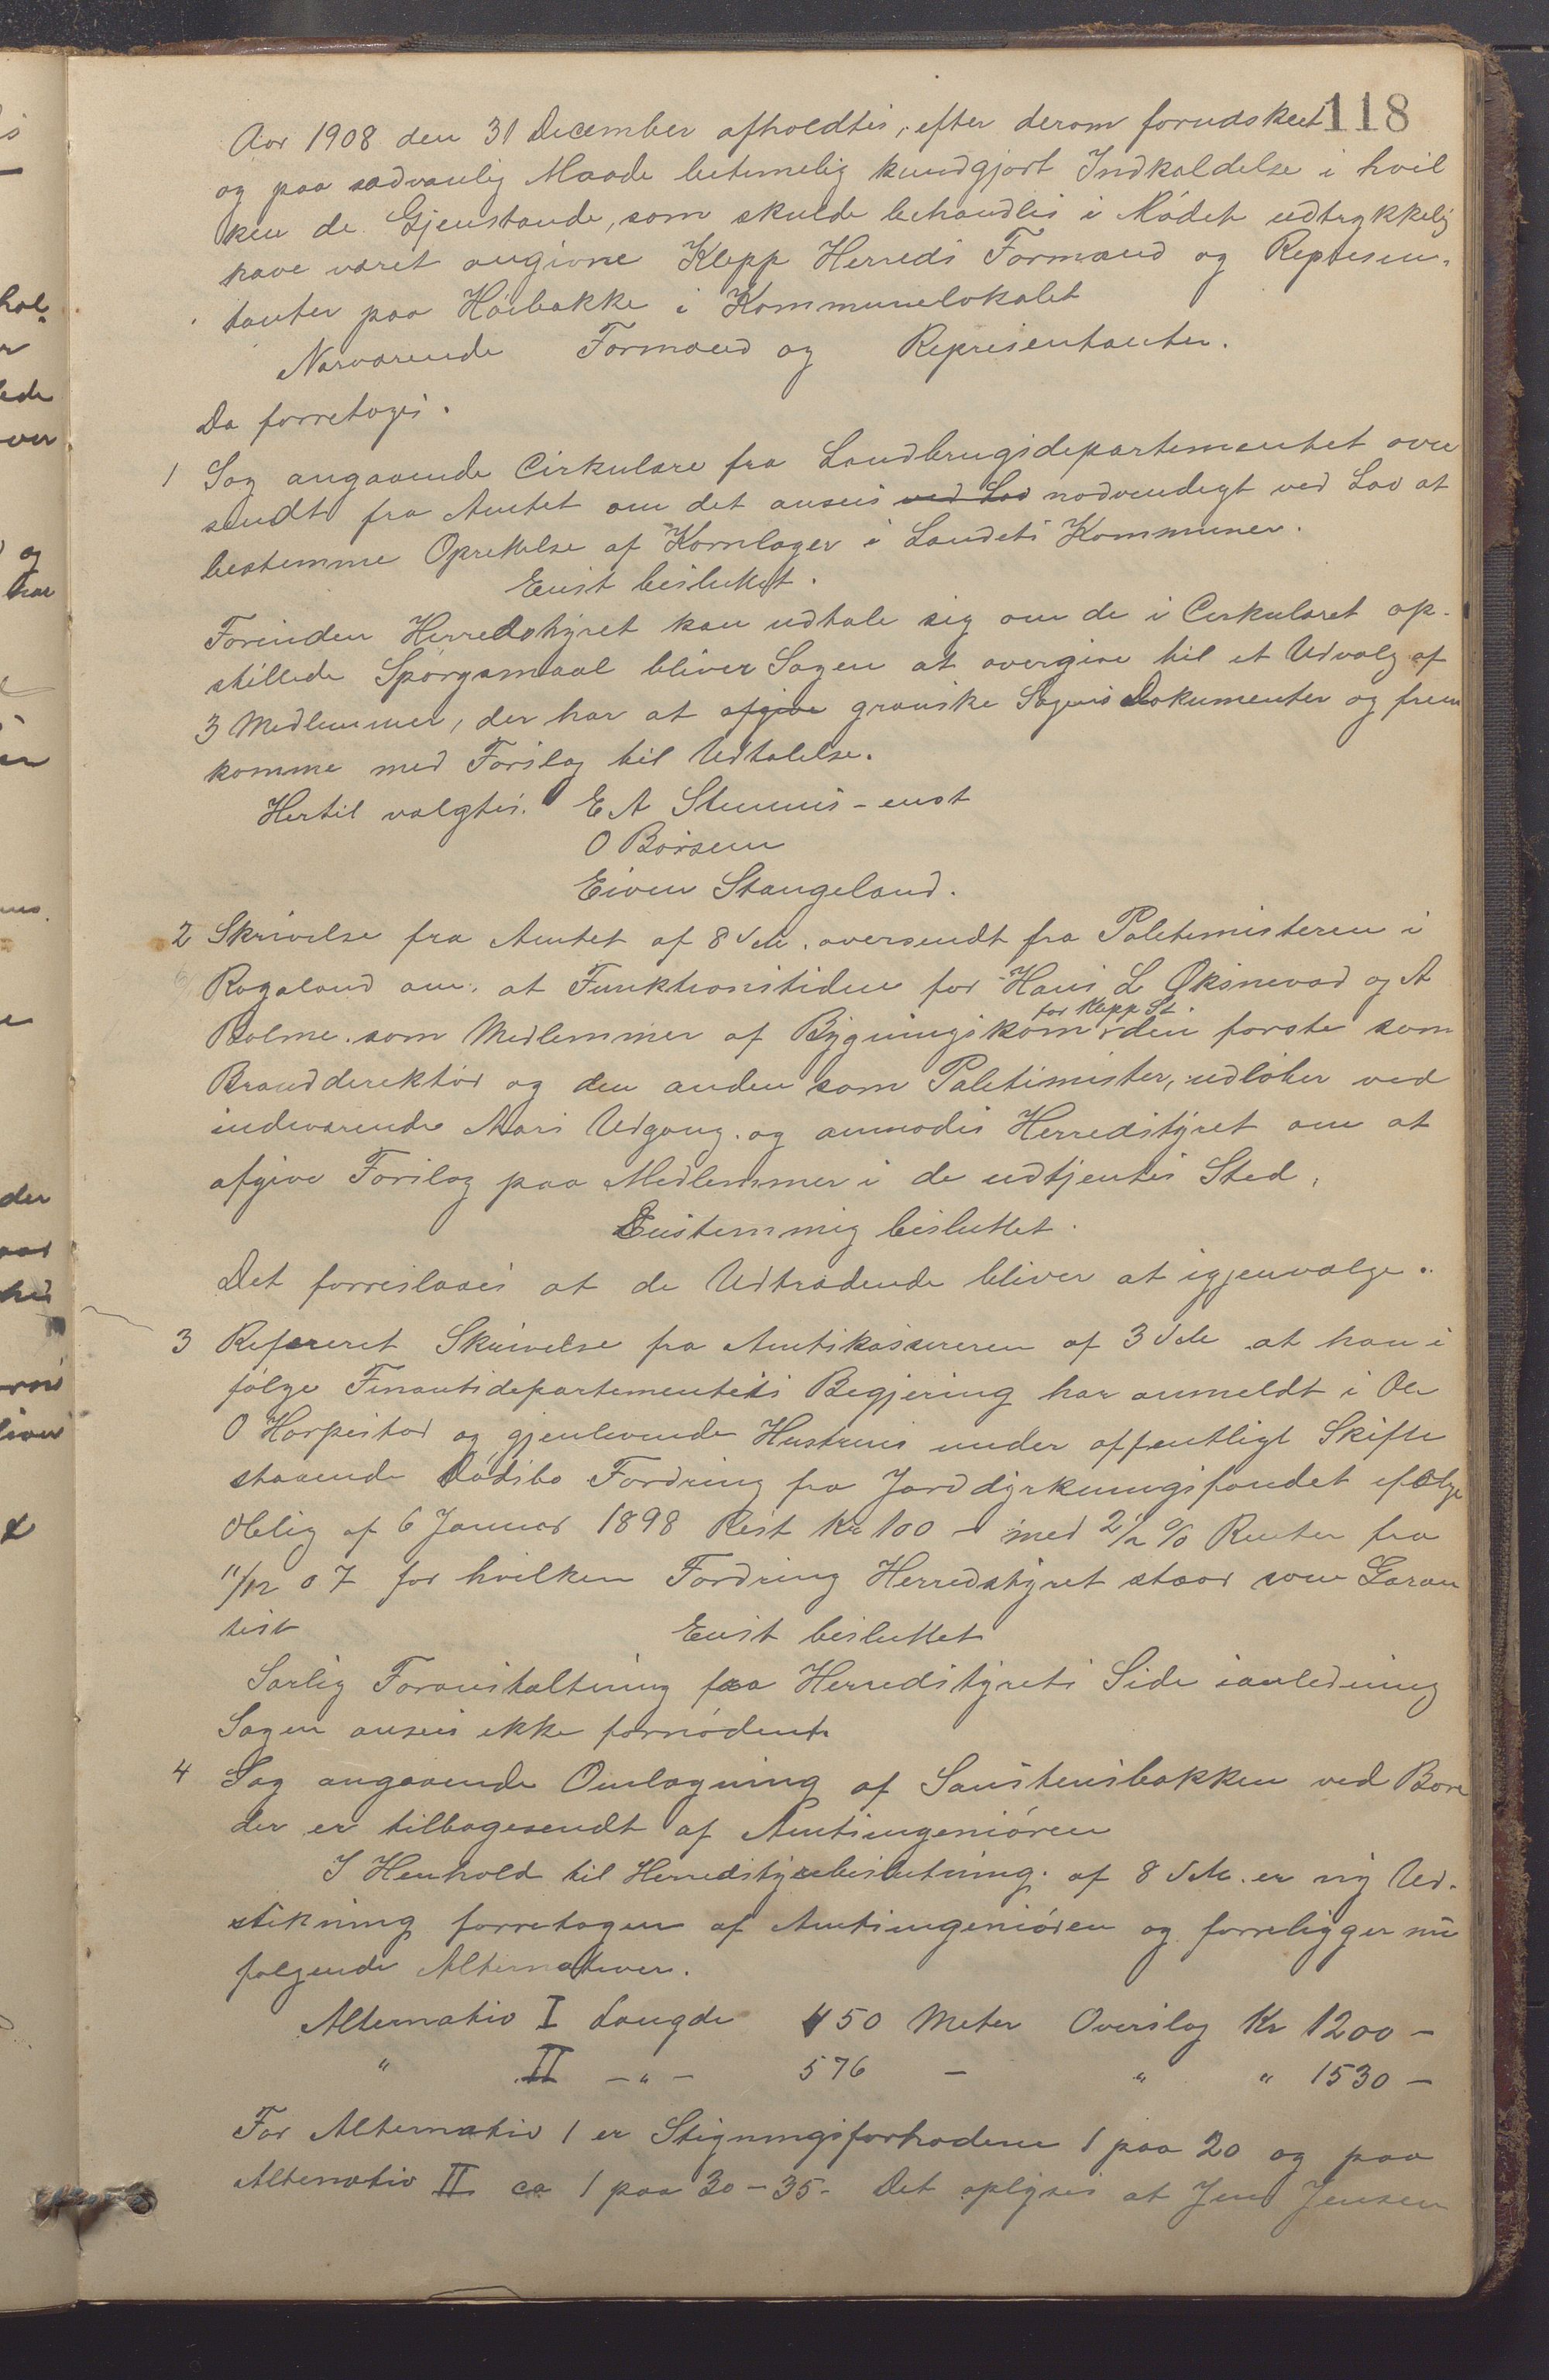 118
Aar 1908 den 31 December afholdtes, efter derom forudskeet
og paa sædvanlig Maade betimelig kundgjort Indkaldelse i hvil
ken de Gjenstande, som skulde behandles i Mødet udtrykkelig
have været angivne Klepp Herreds Formænd og Repræsen-
tanter paa Høibakke i Kommunelokalet
Nærværende Formænd og Repræsentanter.
Da forretoges.
1 Sag angaaende Cirkulære fra Landbrugsdepartementet over
sendt fra Amtet om det ansees ved Lov nødvendigt ved Lov at
bestemme Oprettelse af Kornlager i Landets Kommuner.
Enst besluttet.
Forinden Herredstyret kan udtale sig om de i Cirkulæret op-
stillede Spørgsmaal bliver Sagen at overgive til et Udvalg af
3 Medlemmer, der har at afgive granske Sagens Dokumenter og frem
komme med Forslag til Udtalelse.
Hertil valgtes. E A Stennes - enst
O Børsem
Eiven Stangeland.
2 Skrivelse fra Amtet af 8 d.M. oversendt fra Politimesteren i
Rogaland om, at Funktionstiden for Hans L Øksnevad og A
Bolme som Medlemmer af Bygningskom for Klepp St. den første som
Branddirektør og den anden som Politimester, udløber ved
indeværende Aars Udgang. og anmodes Herredstyret om at
afgive Forslag paa Medlemmer i de udtjentes Sted.
Enstemmig besluttet.
Det foreslaaes at de Udtrædende bliver at igjenvælge.
3 Refereret Skrivelse fra Amtskassereren af 3 d.M at han i
følge Finantsdepartementets Begjering har anmeldt i Ole
O Horpestad og gjenlevende Hustrues under offentligt Skifte
staaende Dødsbo Fordring fra Jorddyrkningsfondet ifølge
Oblig af 6 Januar 1898 Rest Kr 100 - med 2 1/2 % Renter fra
11/12 07 for hvilken Fordring Herredstyret staar som Garan
tist
Enst besluttet
Særlig Foranstaltning fra Herredstyrets Side ianledning
Sagen ansees ikke fornødent
4 Sag angaaende Omlægning af Saustensbakken ved Bore
der er tilbagesendt af Amtsingeniøren
I Henhold til Herredstyrebeslutning af 8 d.M. er ny Ud-
stikning forretagen af Amtsingeniøren og forreligger nu
følgende Alternativer.
Alternativ I Længde 450 Meter Overslag Kr 1200 -
" II - " - 576 - " " 1530 -
For Alternativ 1 er Stigningsforholdene 1 paa 20 og paa
Alternativ II ca 1 paa 30 - 35. Det oplyses at Jens Jensen